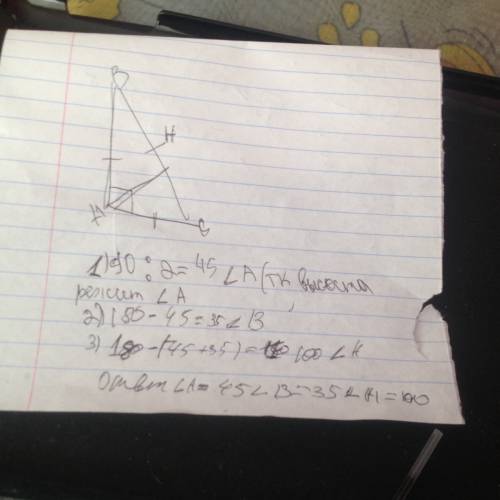 B
H
A
C
1) 90 : 2 = 45 ∠A (тк высота
режет ∠A
2) 180 - 45 = 35 ∠B
3) 180 - (45 + 35) = 100 ∠H
Ответ ∠A = 45 ∠B = 35 ∠H = 100